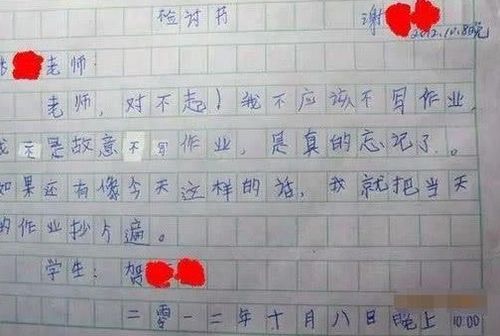 检讨书 谢
2012.10.8晚
老师:
老师,对不起!我不应该不写作业
我不是故意不写作业,是真的忘记了。
如果还有像今天这样的话,我就把当天
的作业抄 遍。
学生:贺
二零一二年十月八日晚上10:00